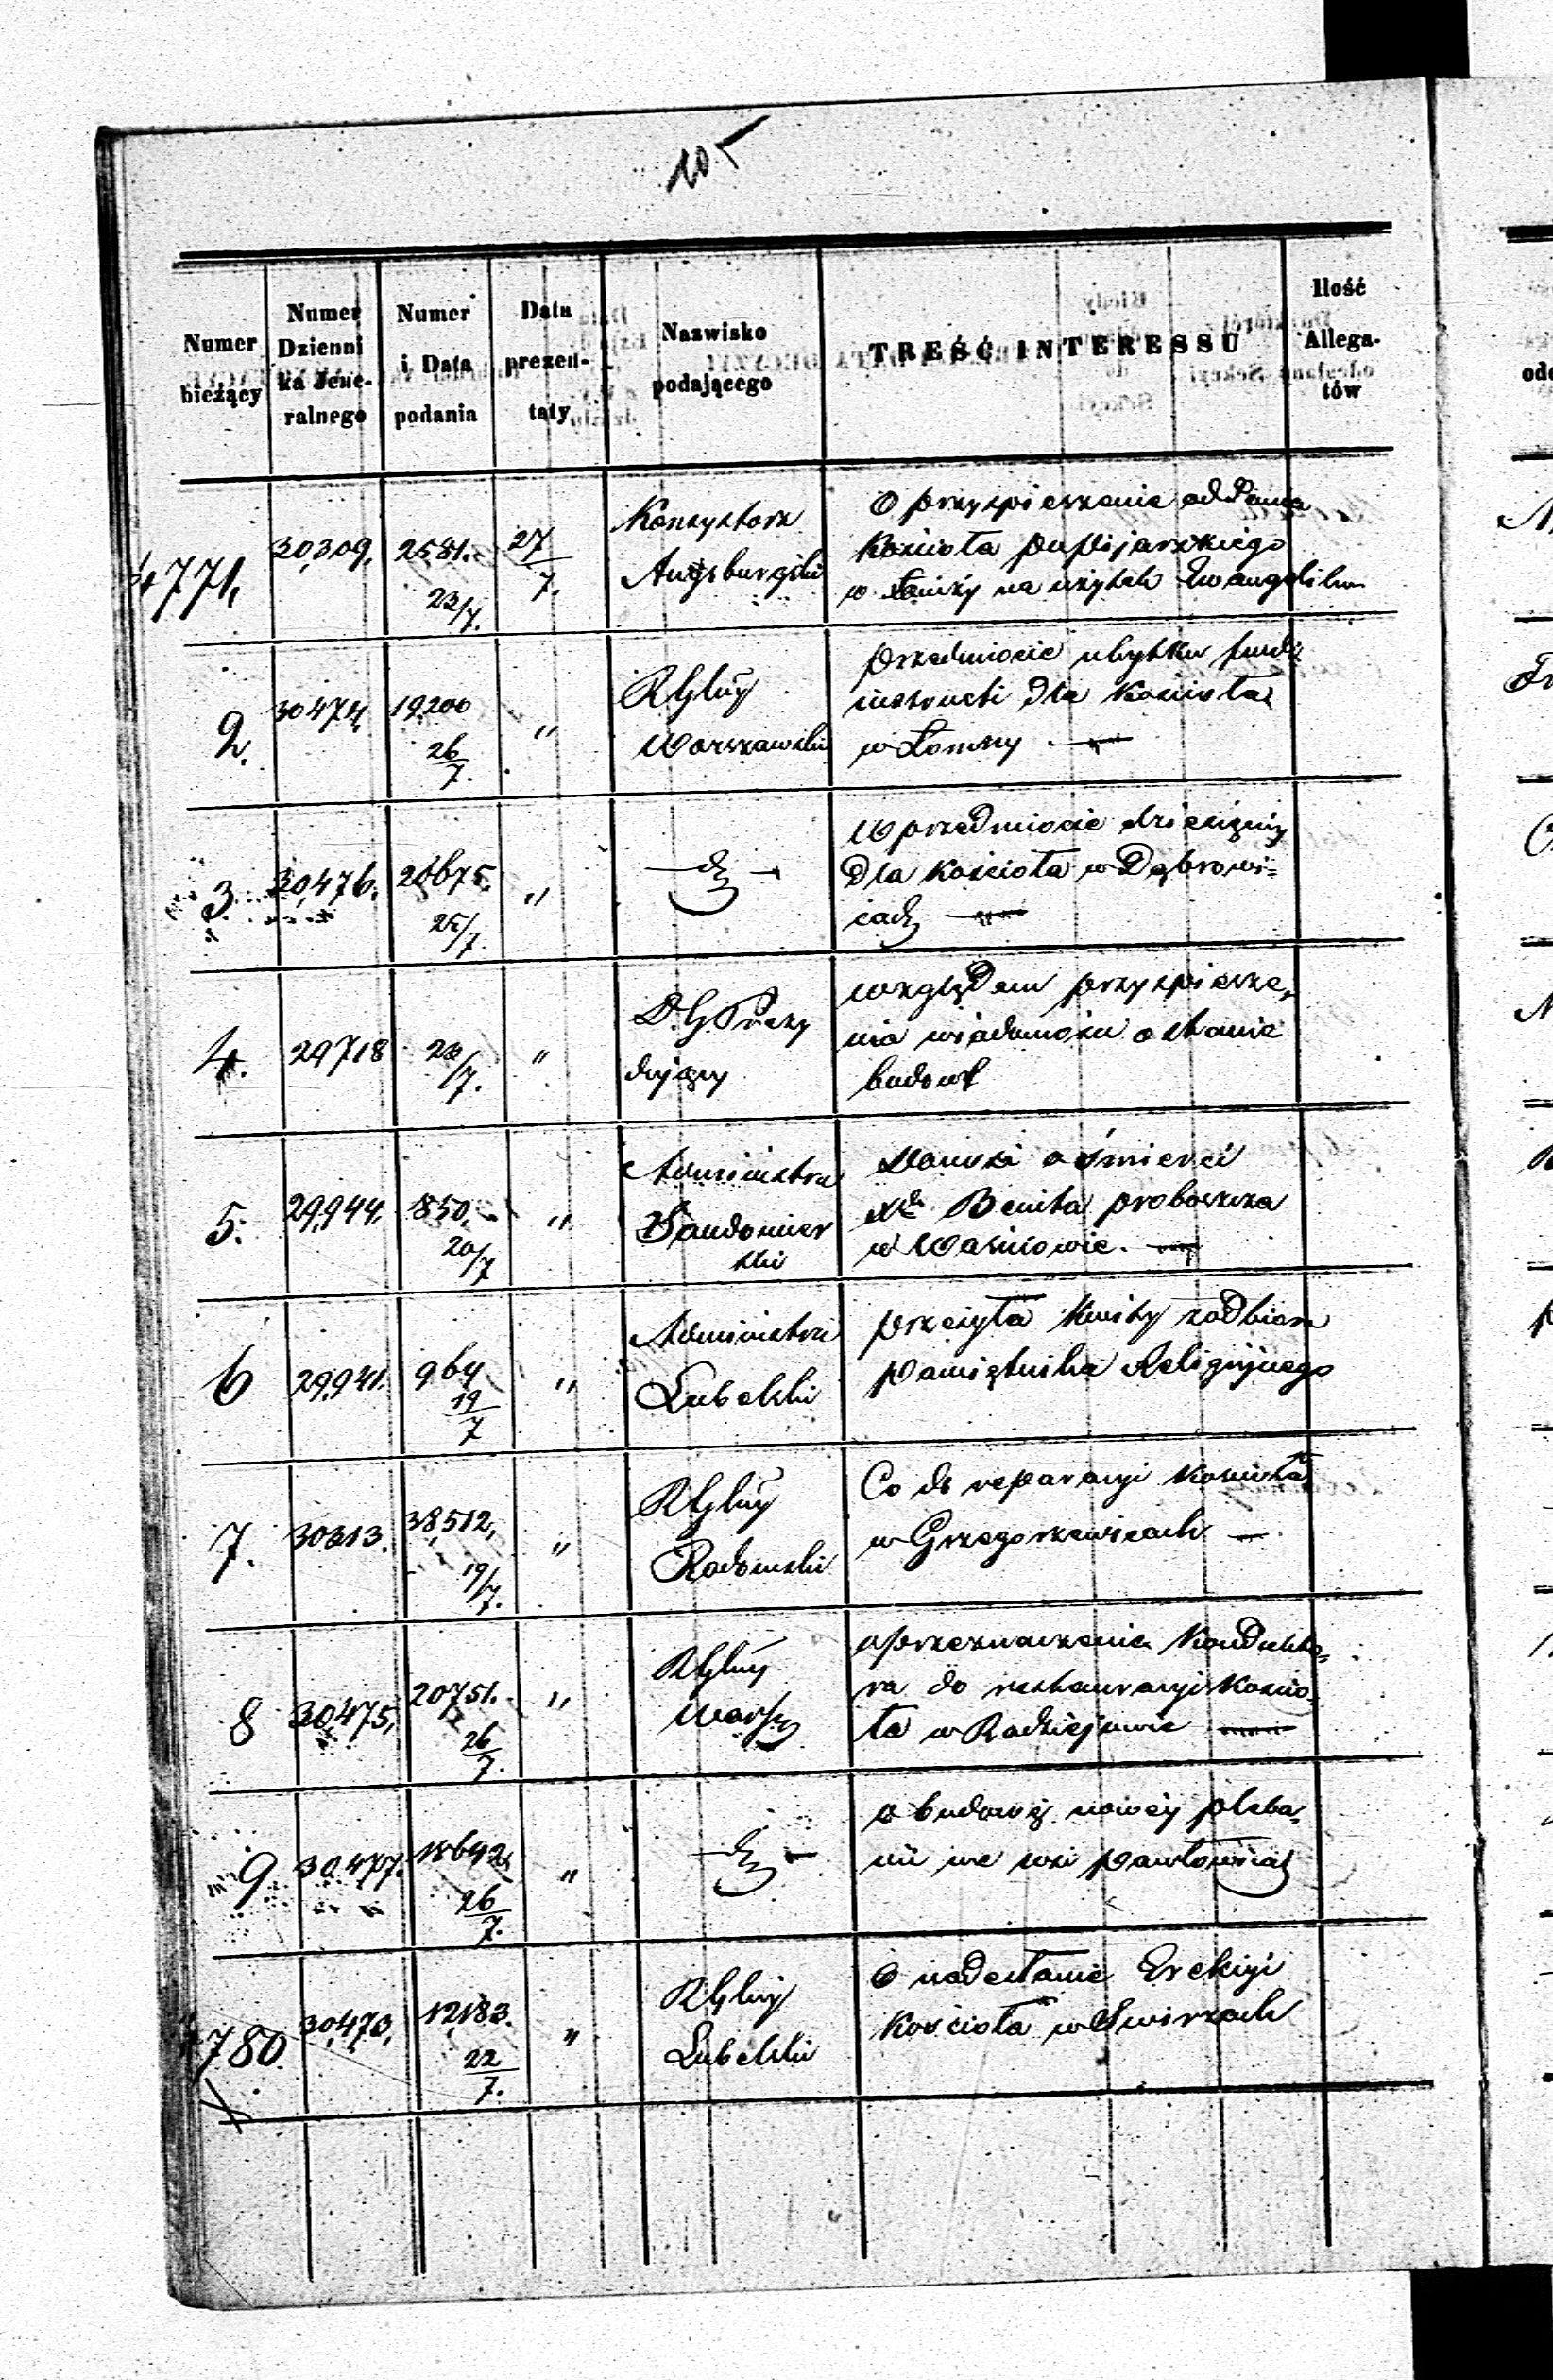 105
Numer bieżący
Numer Dziennika Jeneralnego
Numer i Data podania
Data prezentaty
Nazwisko podającego
TREŚĆ INTERESSU
Ilość Allegatów
4771. 30,309. 2581. 23/7. 27/7.
Konsystorz
Augsburgski
O przyspieszenie oddania
Kościoła popijarskiego
w Łomży na użytek Ewangelików
2. 30474 19200 26/7. "
RGlny
Warszawski
przedmiocie ubytku fundi
instructi dla Kościoła
w Łomny
3 30,476. 25/7. "
W przedmiocie dziesięciny
dla Kościoła w Dąbrowi=
cach
4. 29718 "
D.G. Prezy
dujący
względem przyspiesze,
nia wiadomości o stanie
budowl
5. 29,944. 850. 20/7 "
Administra
Sandomier
ski
Donosi o śmierci
Xdz Benita proboszcza
w Waśniowie.
6 29,941. 964 19/7 "
Administra
Lubelski
przesyła kwity
Pamiętnika Religijnego
7. 30313. 38,512, 19/7. "
RGlny
Radomski
Co do reparacyi Kościoła
w Grzegorzewicach
8 30,475, 20751. 26/7. "
RGlny
Warsz
o przeznaczenie Kondukto,
ra do restauracyi Kościo,
ła w Radziejowie
9 30,477. 18642 26/7. "
o budowę nowéj pleba,
nii we wsi Pawłowicach
4780 30,473, 12,183. 22/7. "
RGlny
Lubelski
O nadesłanie Erekcyi
Kościoła w Swierzach